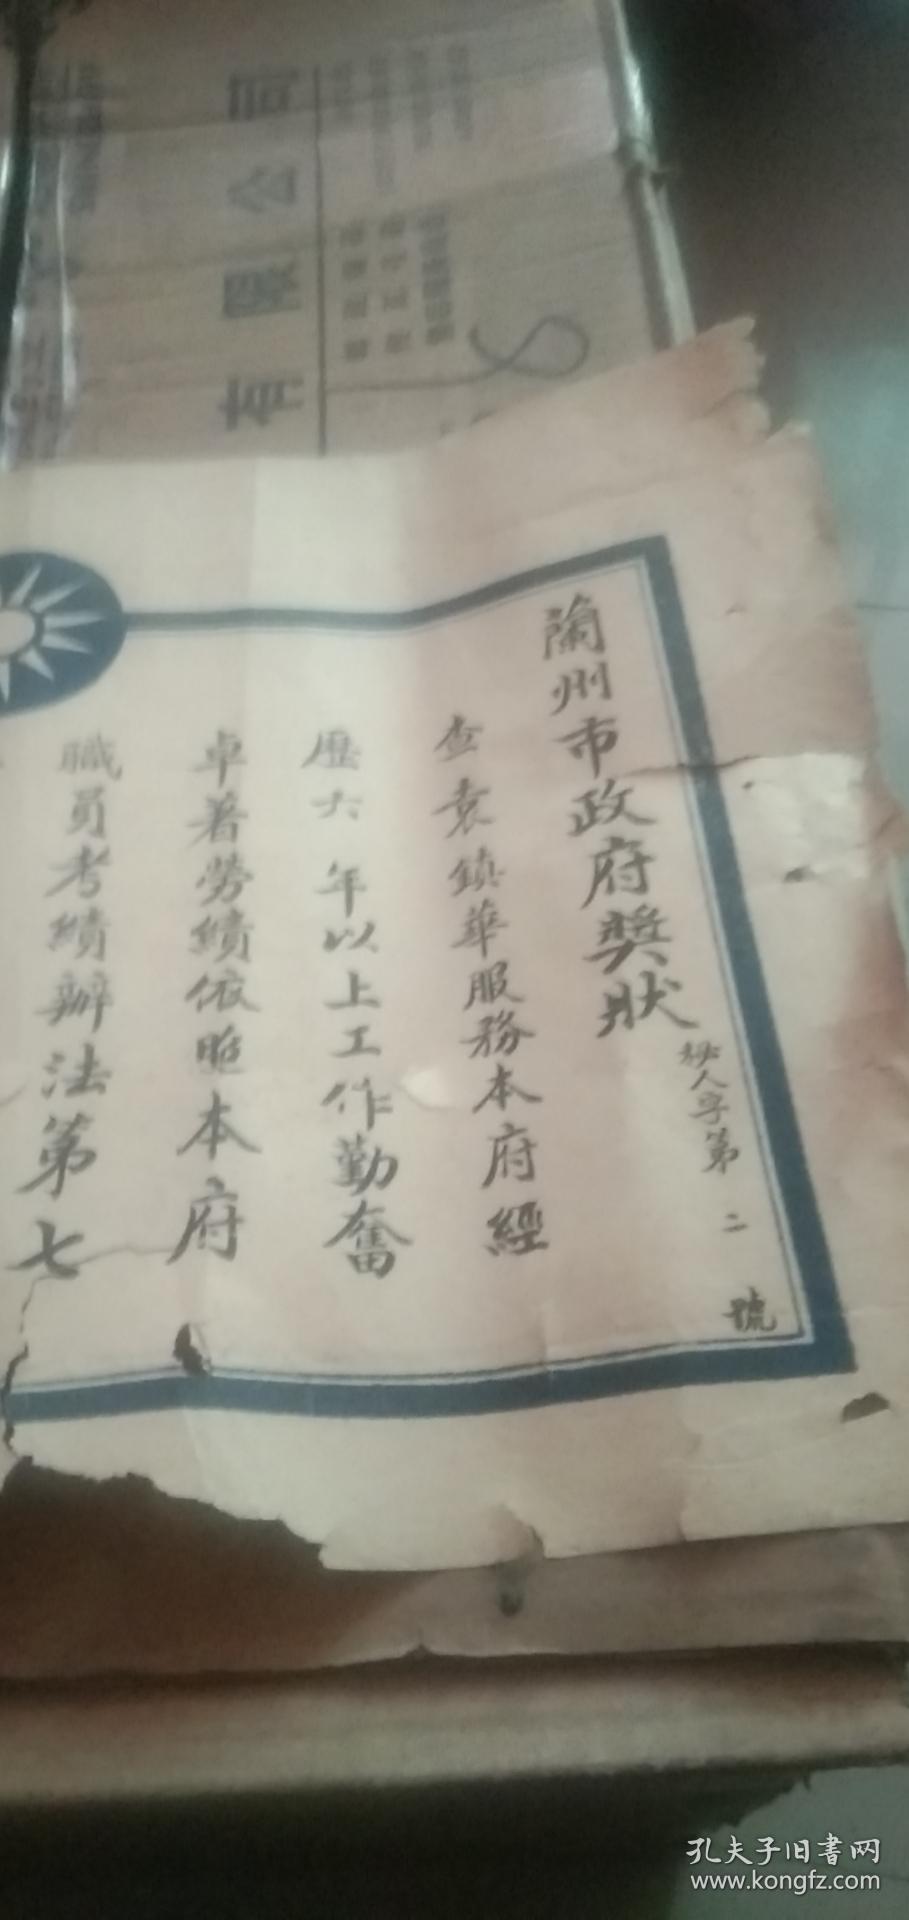 蘭州市政府獎狀
秘人字第二號
查袁鎮華服務本府經
歷六年以上工作勤奮
卓著勞績依照本府
職員考績辦法第七
有限公司
孔夫子旧书网
www.kongfz.com